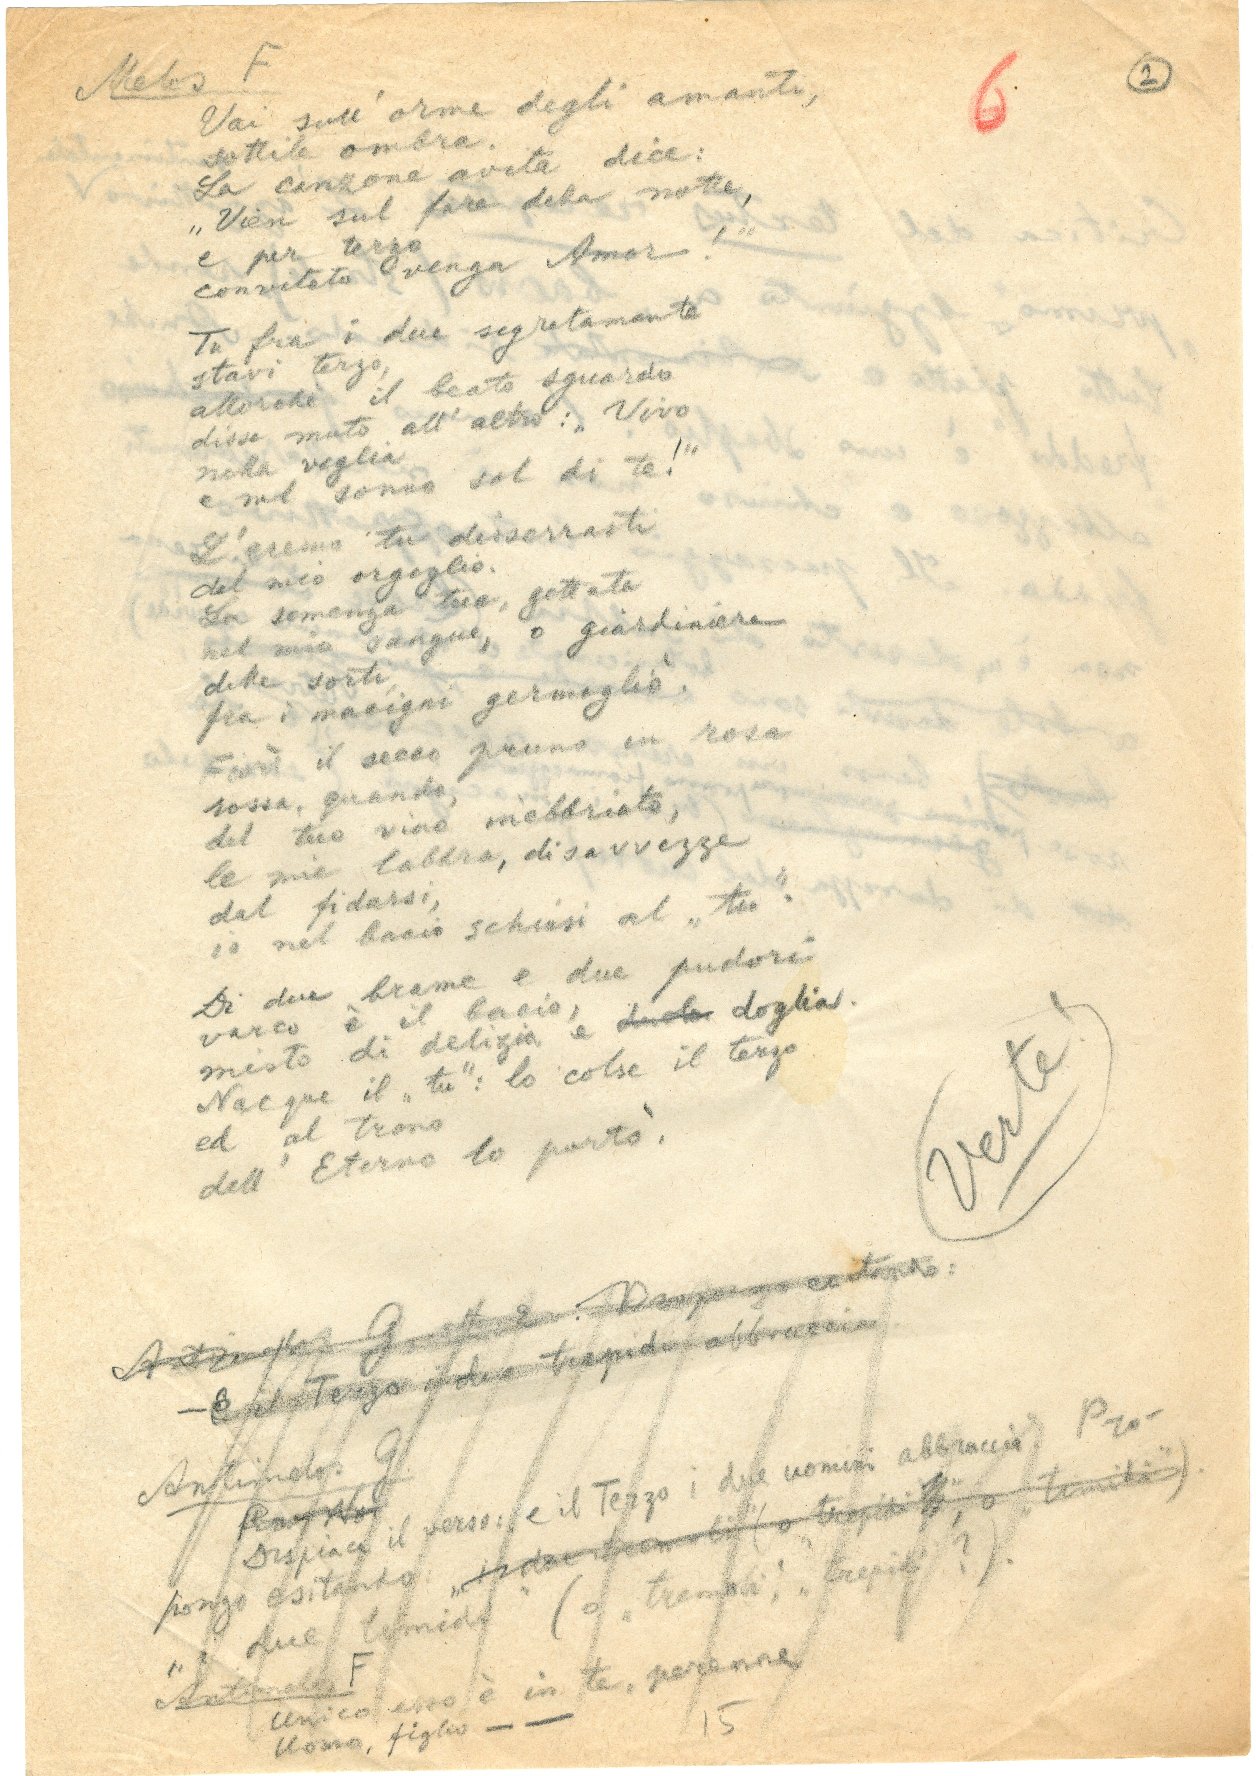 Melos F
6
2
Vai sull'orme degli amanti,
sottile ombra.
La canzone avita dice:
„Vien sul fare della notte,
e per terzo
convitato venga Amor!"
Tu fra i due segretamente
stavi terzo,
allorché il beato sguardo
disse muto all'altro: „Vivo
nella veglia
e nel sonno sol di te!"
L'eremo tu disserrasti
del mio orgoglio.
La semenza tua, gettata
nel mio sangue, o giardiniere
delle sorti,
fra i macigni germogliò.
Fiorì il secco pruno in rosa
rossa, quando,
del tuo vino inebbriato,
le mie labbra, disavvezze
dal fidarsi,
io nel bacio schiusi al „tu".
Di due brame e due pudori
varco è il bacio,
misto di delizia e doglia.
Nacque il „tu": lo colse il terzo
ed al trono
dell'Eterno lo portò.
Verte!
Antimelos G Propongo esitando:
— E il Terzo i due trepidi abbraccia
Antimelos G.
Dispiace il verso: „e il Terzo i due uomini abbraccia". Pro-
pongo esitando: „i due tremoli" (o „trepidi", o „timidi").
„i due timidi" (o „tremoli", „trepidi"?).
Antimelos F
Unico esso è in te, perenne
Uomo, figlio — —
15